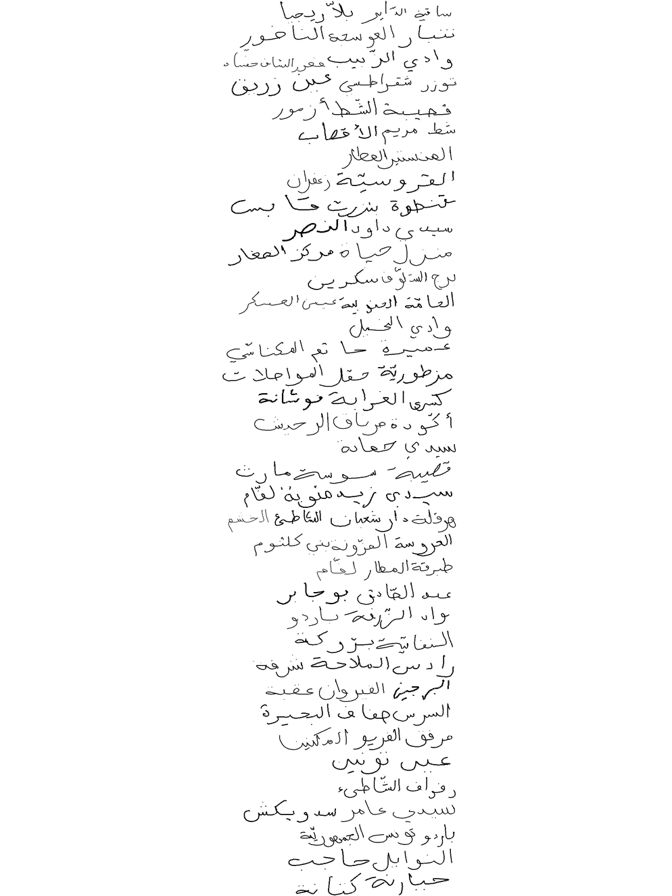 ساقية الدّاير بلاّريجيا
شنبار العوسجة الناظور
وادي الزّبيب
توزر شقراطسي عين زريق
قصيبة الشّط أزمور
شط مريم الأقصاب
المنستير العطار
القروسيّة زعفران
غنطوة بنزرت قابس
سيدي داود النصر
منزل حياة مركز الصغار
برج السلّوف سكرين
العامّة الجنوبية عيسى العسكر
وادي النخيل
عميرة حاتم المكناسي
مزطوريّة حقل المواجلات
كسرى الغرابة فوشانة
أكّودة مرناق الرحيش
سيدي جعانة
قصيبة سوسة مارث
سيدي زيد منوبة لقّام
هرقلة دار شعبان الشّاطئ الجسم
العروسة المزّونة بني كلثوم
طبرقة المطار لقّام
عبد الصّادق بوجابر
بواد الزّرقة باردو
النفاتيّة بزّركة
رادس الملاحة شرفة
البرجين القيروان عقبة
السرس جفاف البحيرة
مرفق الفريو المكنين
عين نونين
رفراف الشّاطىء
سيدي عامر سدويكش
باردو تونس الجمهوريّة
النوايل حاجب
جبارنة كتانة